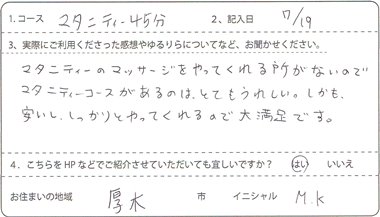 1.コース マタニティー45分 2、記入日 7/19
3、実際にご利用くださった感想やゆるりらについてなど、お聞かせください。
マタニティーのマッサージをやってくれる所がないので
マタニティーコースがあるのは、とてもうれしい。しかも、
安いし、しっかりとやってくれるので大満足です。
4．こちらをHPなどでご紹介させていただいても宜しいですか？ はい いいえ
お住まいの地域 厚木 市 イニシャル M.K